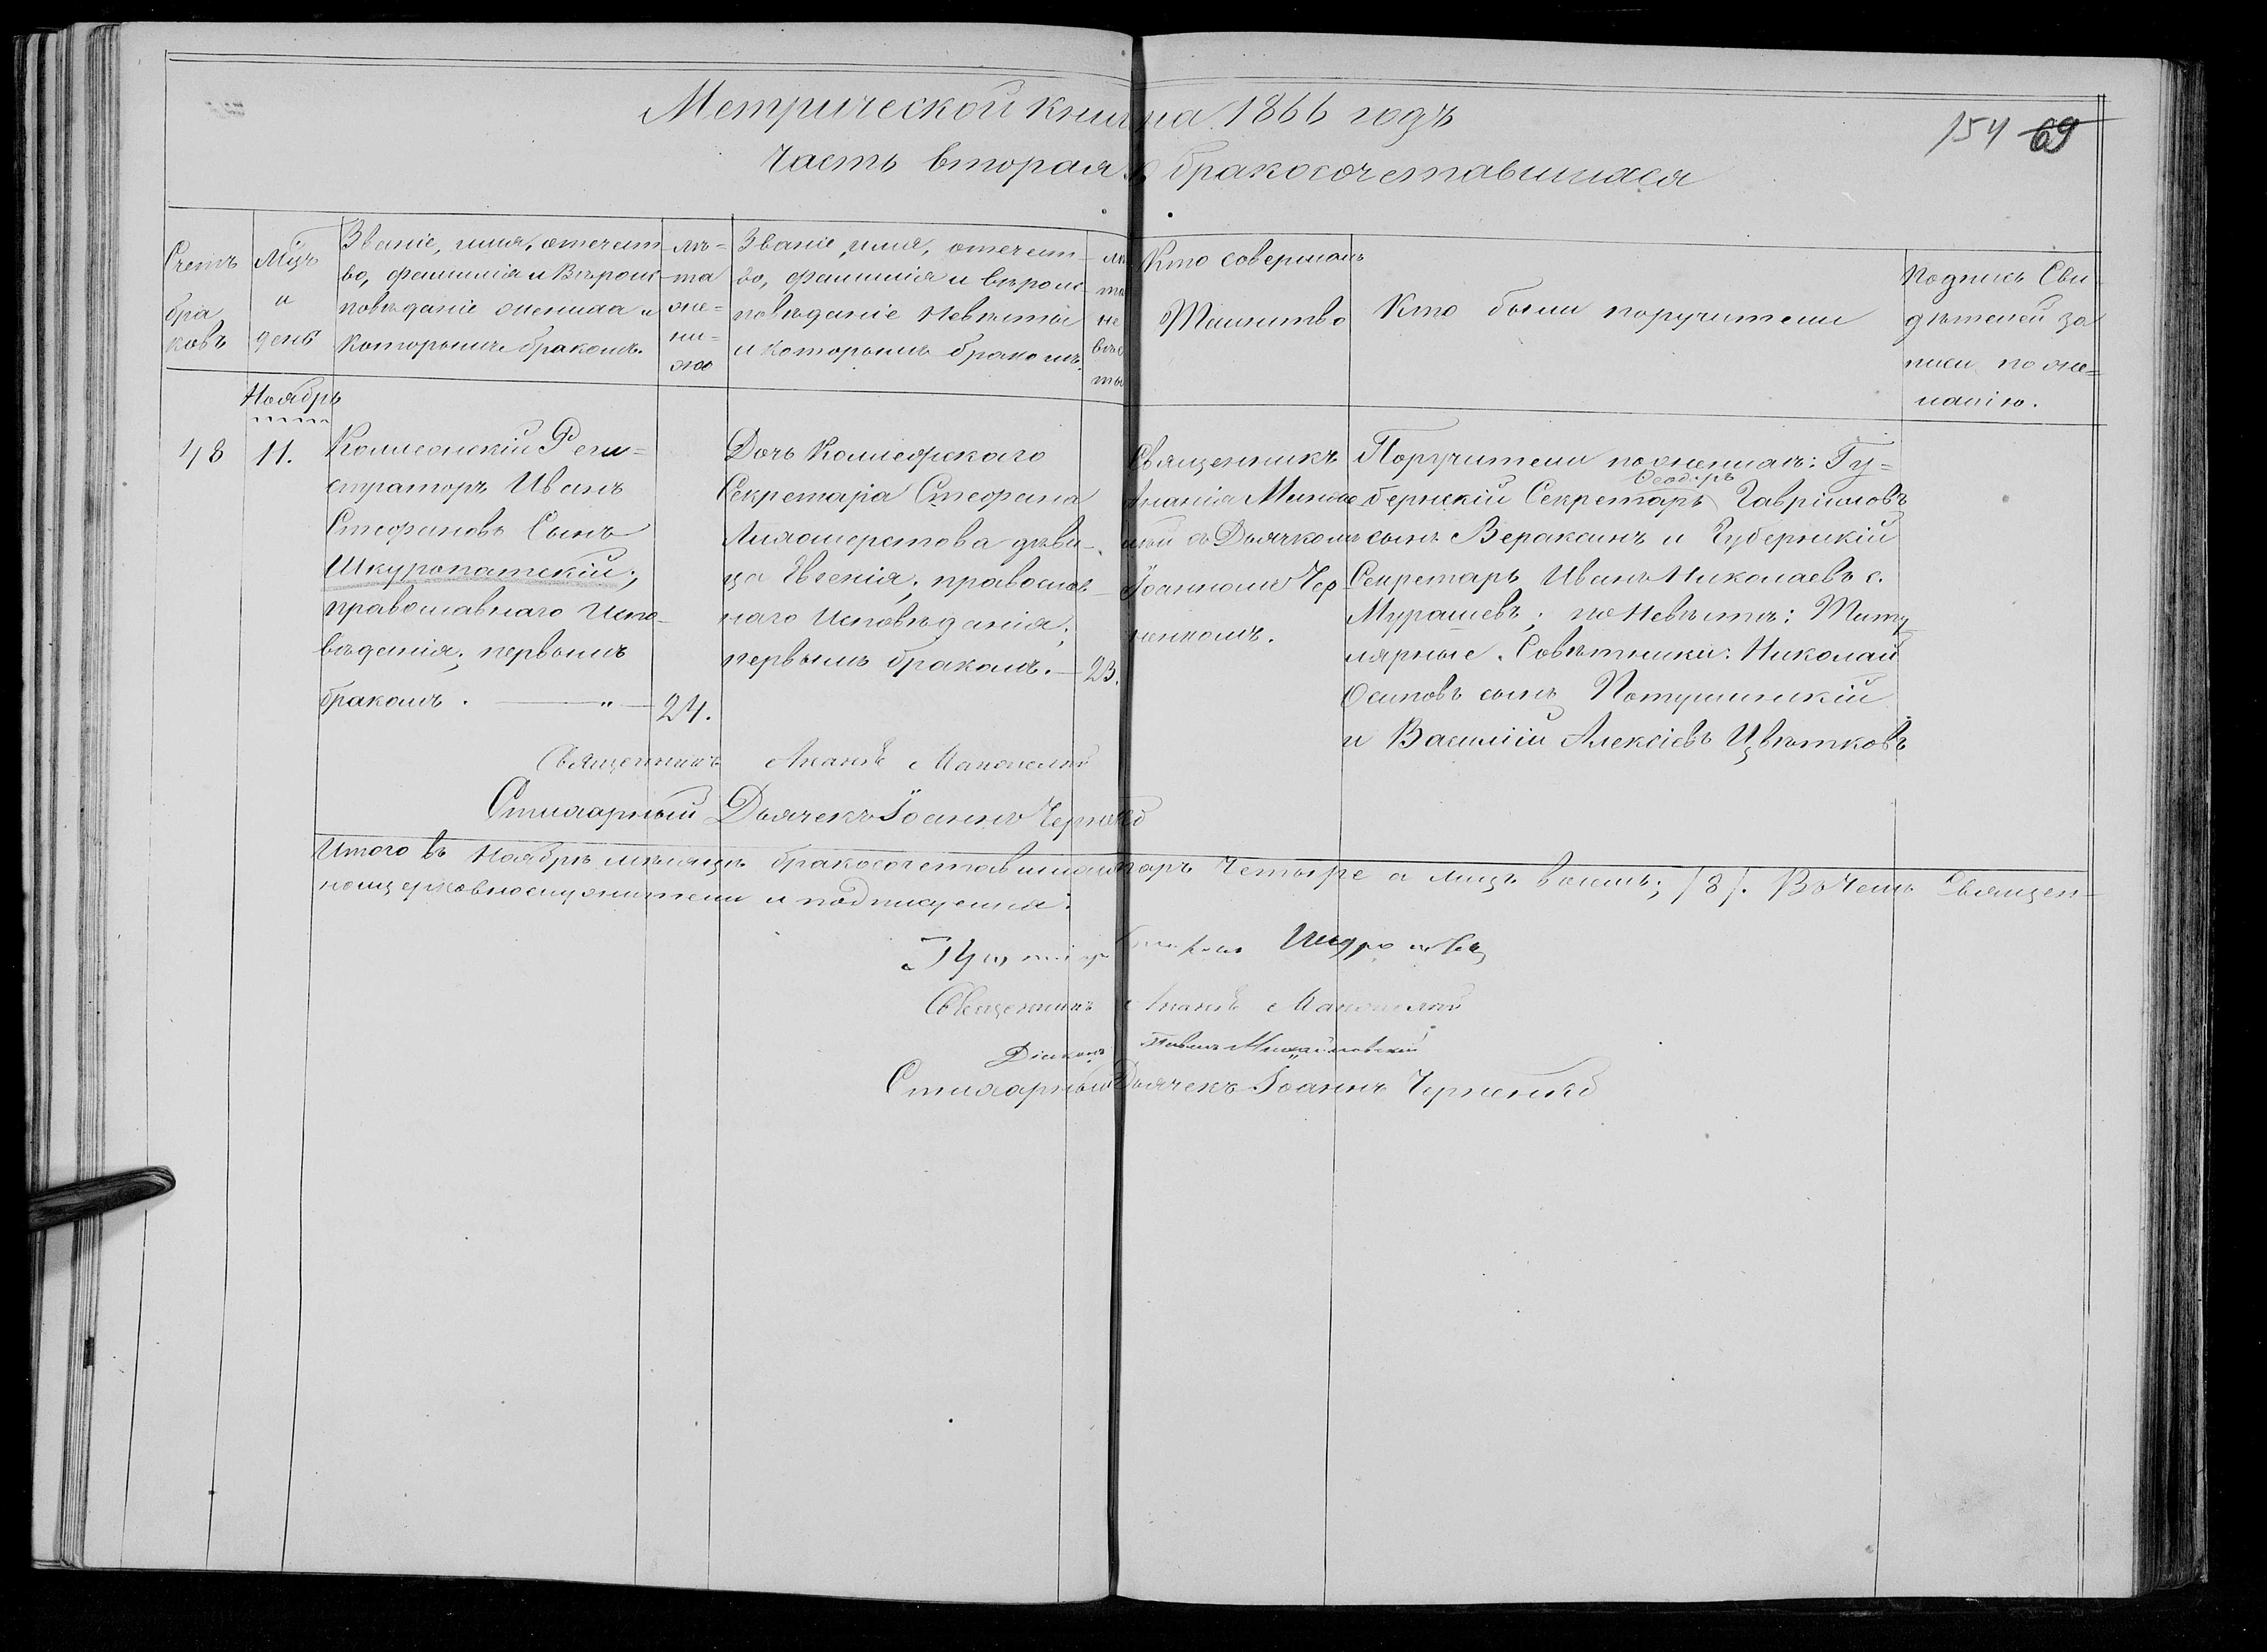 Метрической книги на 1866 годъ
154 69
Часть вторая о бракосочетавшихся
Счетъ браковъ
Мцъ и день
Званіе, имя, отечест-
во, фамилія и вѣроис-
повѣданіе жениха и
которымъ бракомъ.
лѣ-
та
же-
ни-
ха
Званіе, имя, отечест-
во, фамилія и вѣроис-
повѣданіе невѣсты
и которымъ бракомъ.
лѣ
та
не
вѣс
ты
Кто совершалъ
Таинство
Кто были поручители
Подпись Сви-
дѣтелей за
писи по же-
ланію.
Ноябрь
48
11.
Коллежскій Реги-
страторъ Иванъ
Стефановъ Сынъ
Шкуропатскій;
православнаго Испо-
вѣданія; первымъ
бракомъ. — " — 24.
Дочь Коллежскаго
Секретаря Стефана
дѣви-
ца Евгенія; православ-
наго Исповѣданія;
первымъ бракомъ. — 23.
Священникъ
Ананія
съ Дьячкомъ
Іоанномъ Чер-
ненкомъ.
Поручители по женихѣ: Гу-
бернскій Секретарь Ѳеодоръ Гавріиловъ
сынъ Вераксинъ и Губернскій
Секретарь Иванъ Николаевъ с.
Мурашевъ; по невѣстѣ: Титу
лярные Совѣтники: Николай
Осиповъ сынъ Потушинскій
и Василій Алексіевъ Цвѣтковъ
Священникъ Ананія
Стихарный Дьячекъ Іоаннъ Черненко
Итого въ Ноябрѣ мѣсяцѣ бракосочетавшихся паръ четыре а лицъ восемь; /8/. Въ чемъ Священ-
ноцерковнослужители и подписуемся:
Священникъ Ананія
Діаконъ Павелъ Михайловскій
Стихарный Дьячекъ Іоаннъ Черненко